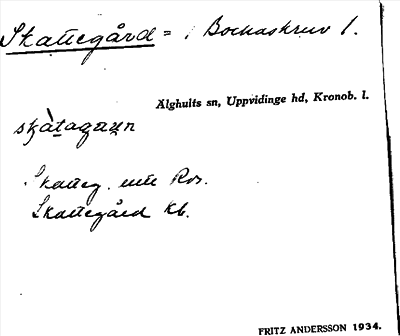 Skattegård = i Bockaskruv 1.
Älghults sn, Uppvidinge hd, Kronob. l.
Skatteg.
Skattegård Kb.
FRITZ ANDERSSON 1934.